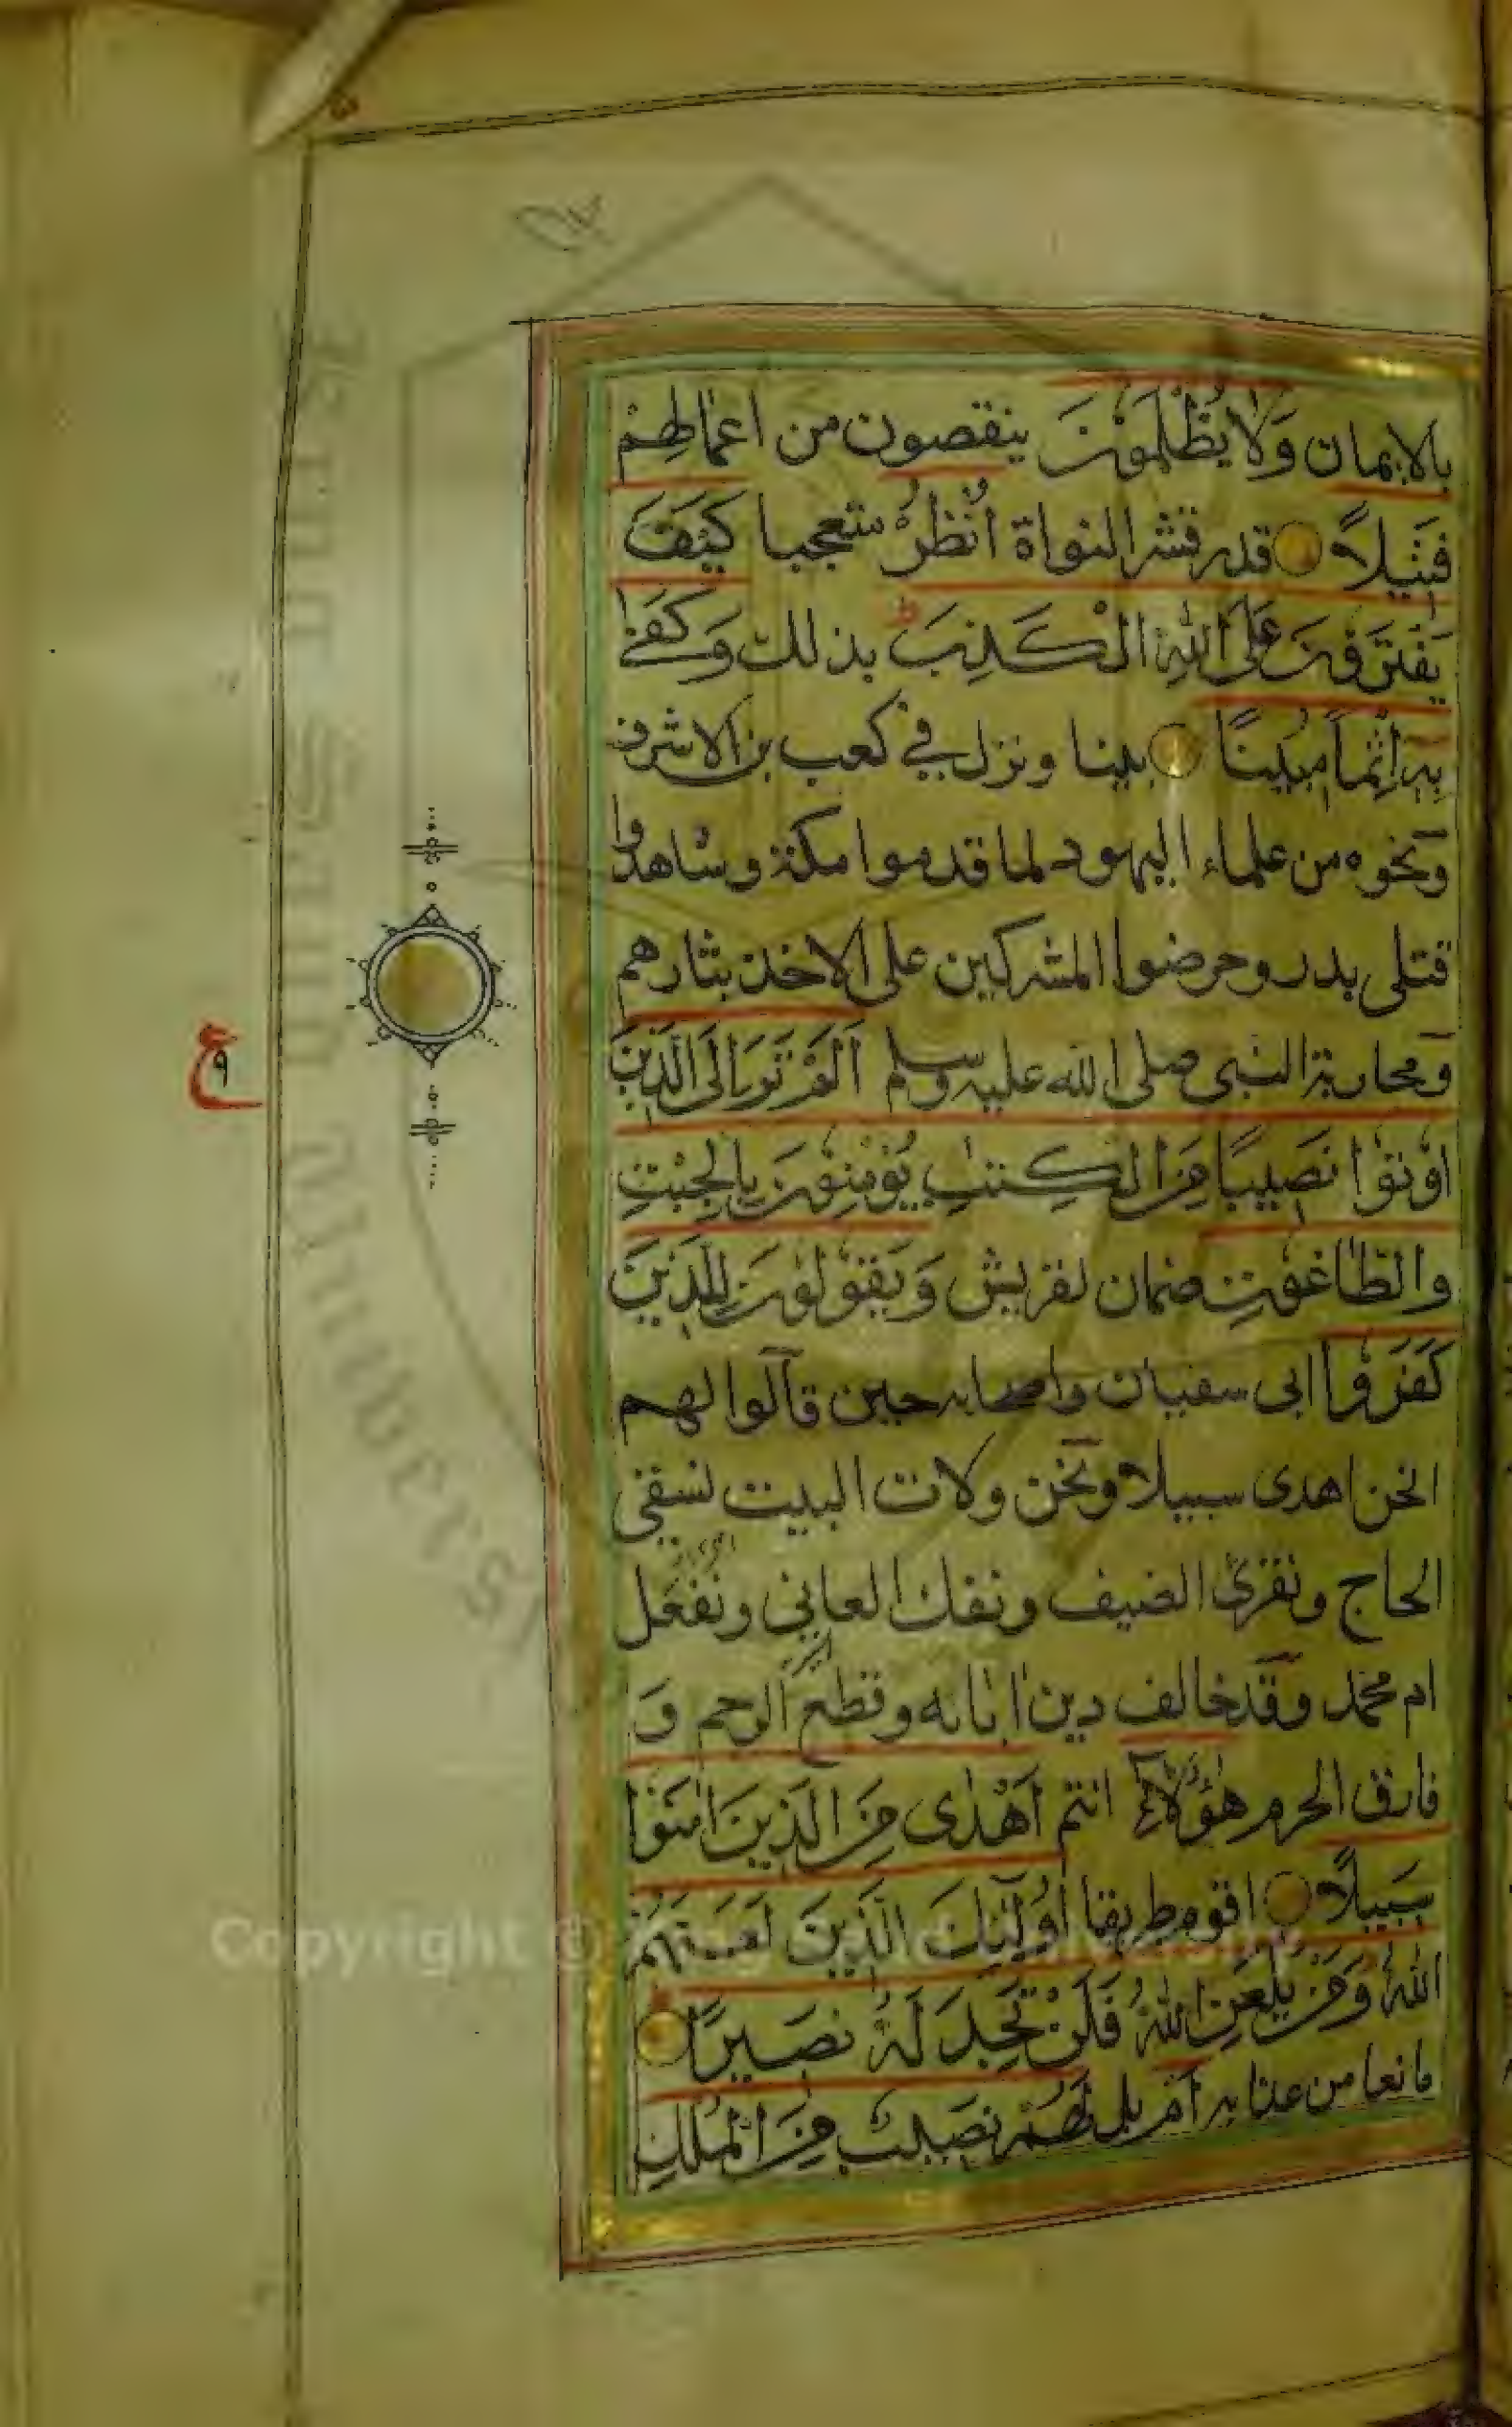 بالايمان وَلَا يُظْلَمُوْنَ ينقصون من اعمالهم
فَتِيْلًا قدر قشر النواة اُنْظُرْ متعجبا كَيْفَ
يَفْتَرُوْنَ عَلَى اللّٰهِ الْكَذِبَ بذلك وَكَفٰى
بِهٖ اِثْمًا مُبِيْنًا بينا ونزل في كعب بن الاشرف
ونحوه من علماء اليهود لما قدموا مكة وشاهدوا
قتلى بدر وحرضوا المشركين على الاخذ بثارهم
ومحاربة النبي صلى الله عليه وسلم اَلَمْ تَرَ اِلَى الَّذِيْنَ
اُوْتُوْا نَصِيْبًا مِنَ الْكِتٰبِ يُؤْمِنُوْنَ بِالْجِبْتِ
وَالطَّاغُوْتِ صنمان لقريش وَيَقُوْلُوْنَ لِلَّذِيْنَ
كَفَرُوْا ابى سفيان واصحابه حين قالوا لهم
انحن اهدى سبيلا ونحن ولات البيت نسقى
الحاج ونقرى الضيف ونفك العاني ونفعل
ام محمد وقد خالف دين ابائه وقطع الرحم و
فارق الحرم هٰؤُلَاءِ انتم اَهْدٰى مِنَ الَّذِيْنَ اٰمَنُوْا
سَبِيْلًا اقوم طريقا اُولٰئِكَ الَّذِيْنَ لَعَنَهُمُ
اللّٰهُ وَمَنْ يَلْعَنِ اللّٰهُ فَلَنْ تَجِدَ لَهٗ نَصِيْرًا
مانعا من عذابه اَمْ بل لَهُمْ نَصِيْبٌ مِنَ الْمُلْكِ
ع
٩
Copyright © King Saud University